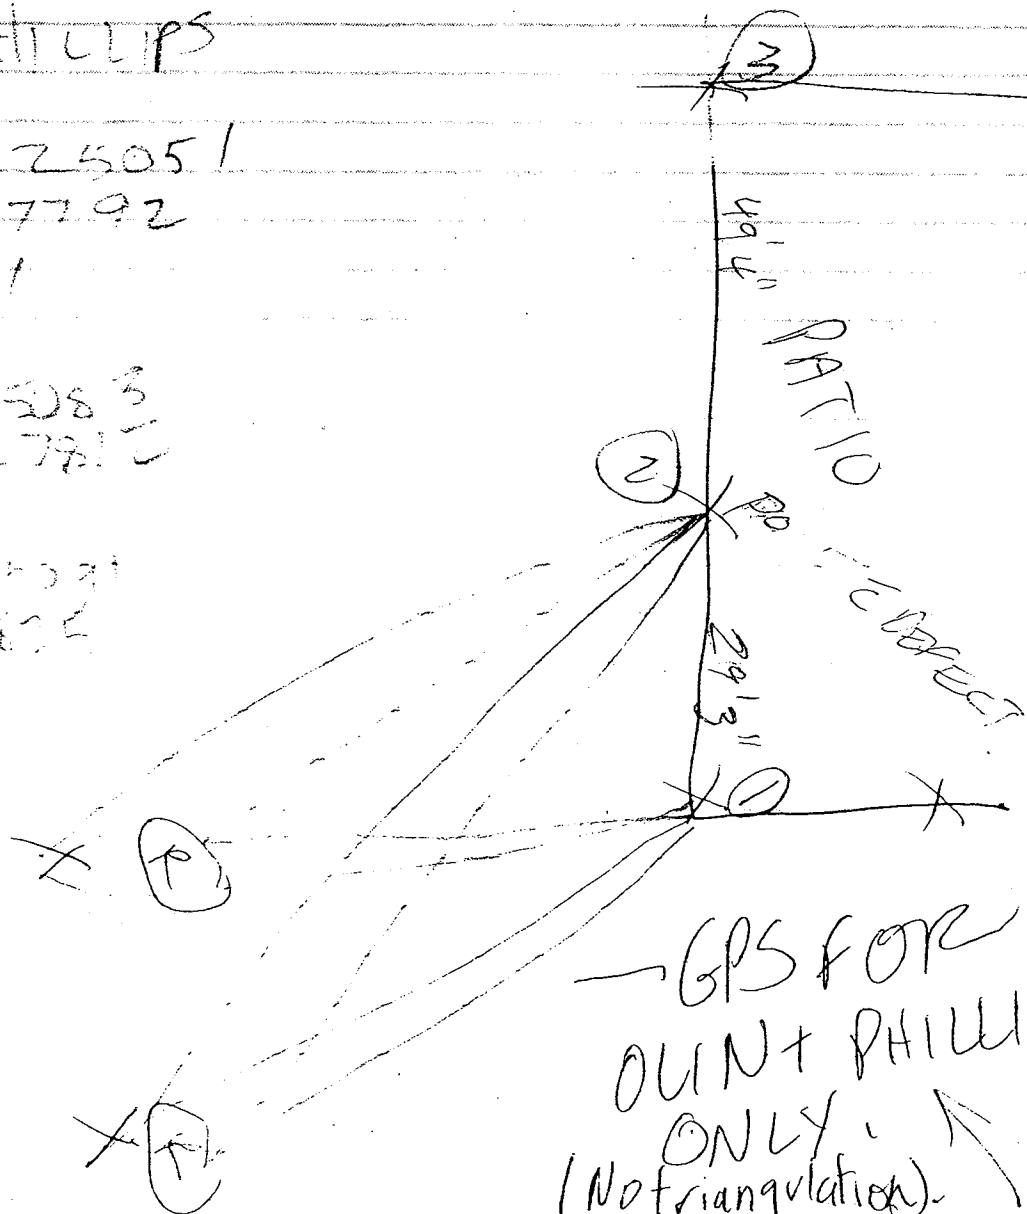 HILLIPS
3
25051
7792
1
49'4"
PATIO
5083
781
2
DEFECT
29'3"
1
P
— GPS FOR
OLIN + PHILLI
ONLY.
(No triangulation).